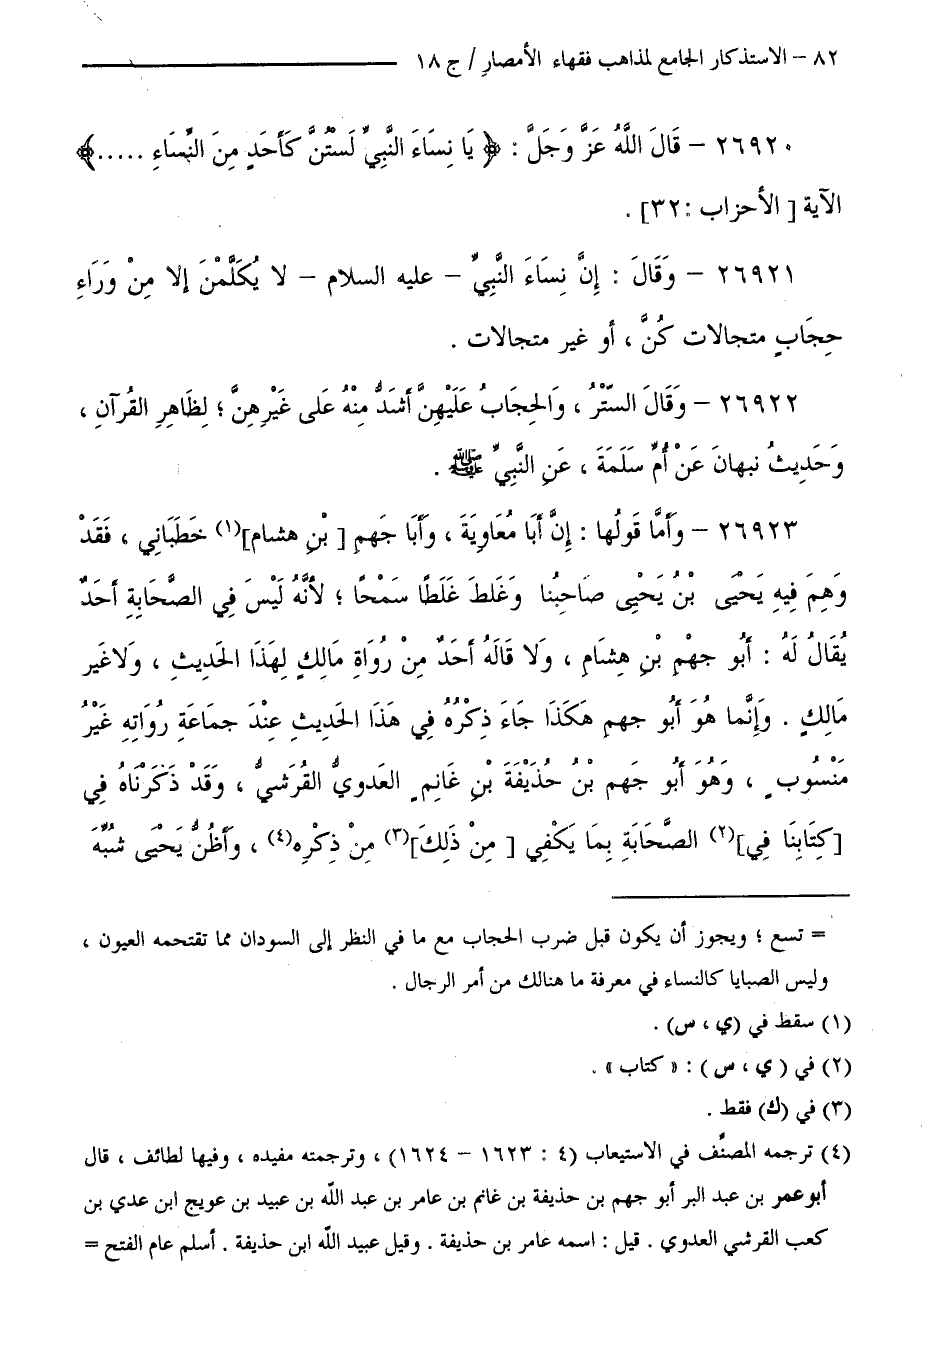 ٨٢ – الاستذكار الجامع لمذاهب فقهاء الأمصار / ج ١٨
٢٦٩٢٠ – قَالَ اللَّهُ عَزَّ وَجَلَّ : ﴿ يَا نِسَاءَ النَّبِيِّ لَسْتُنَّ كَأَحَدٍ مِنَ النِّسَاءِ .....﴾
الآية [ الأحزاب : ٣٢] .
٢٦٩٢١ – وَقَالَ : إِنَّ نِسَاءَ النَّبِيِّ – عليه السلام – لا يُكَلَّمْنَ إلا مِنْ وَرَاءِ
حِجَابٍ متجالات كُنَّ ، أو غير متجالات .
٢٦٩٢٢ – وَقَالَ السَّتْرُ ، وَالحِجَابُ عَلَيْهِنَّ أَشَدُّ مِنْهُ عَلى غَيْرِهِنَّ ؛ لِظَاهِرِ القُرآنِ ،
وَحَدِيثُ نبهانَ عَنْ أُمِّ سَلَمَةَ ، عَنِ النَّبِيِّ ﷺ .
٢٦٩٢٣ – وَأَمَّا قَولُها : إِنَّ أَبَا مُعَاوِيَةَ ، وَأَبَا جَهمِ [ بْنِ هشام](١) خَطَبَانِي ، فَقَدْ
وَهِمَ فِيهِ يَحْيَى بْنُ يَحْيِى صَاحِبُنا وَغَلطَ غَلَطًا سَمْحًا ؛ لأَنَّهُ لَيْسَ فِي الصَّحَابَةِ أَحَدٌ
يُقَالُ لَهُ : أَبُو جهْمِ بْنِ هِشَامٍ ، وَلا قَالَهُ أَحَدٌ مِنْ رُوَاةِ مَالِكٍ لِهَذَا الحَدِيثِ ، وَلاغَير
مَالِكٍ . وَإِنَّما هُوَ أَبُو جهم هَكَذَا جَاءَ ذِكْرُهُ فِي هَذَا الحَدِيثِ عِنْدَ جماعَة رُوَاتِهِ غَيْرُ
مَنْسُوبٍ ، وَهُوَ أَبُو جَهم بْنُ حُذَيفَةَ بْنِ غَانِمٍ العَدويُّ القُرَشيُّ ، وَقَدْ ذَكَرْنَاهُ فِي
[كِتَابِنَا فِي](٢) الصَّحَابَةِ بِمَا يَكْفِي [ مِنْ ذَلِكَ](٣) مِنْ ذِكْرِهِ(٤) ، وَأَظُنُّ يَحْيَى شُبِّهَ
= تسع ؛ ويجوز أن يكون قبل ضرب الحجاب مع ما في النظر إلى السودان مما تقتحمه العيون ،
وليس الصبايا كالنساء في معرفة ما هنالك من أمر الرجال .
(١) سقط في (ي ، س) .
(٢) في ( ي ، س ) : « كتاب » .
(٣) في (ك) فقط .
(٤) ترجمه المصنِّف في الاستيعاب (٤ : ١٦٢٣ – ١٦٢٤) ، وترجمته مفيده ، وفيها لطائف ، قال
أبو عمر بن عبد البر أبو جهم بن حذيفة بن غانم بن عامر بن عبد اللّه بن عبيد بن عويج ابن عدي بن
كعب القرشي العدوي . قيل : اسمه عامر بن حذيفة . وقيل عبيد اللّه ابن حذيفة . أسلم عام الفتح =